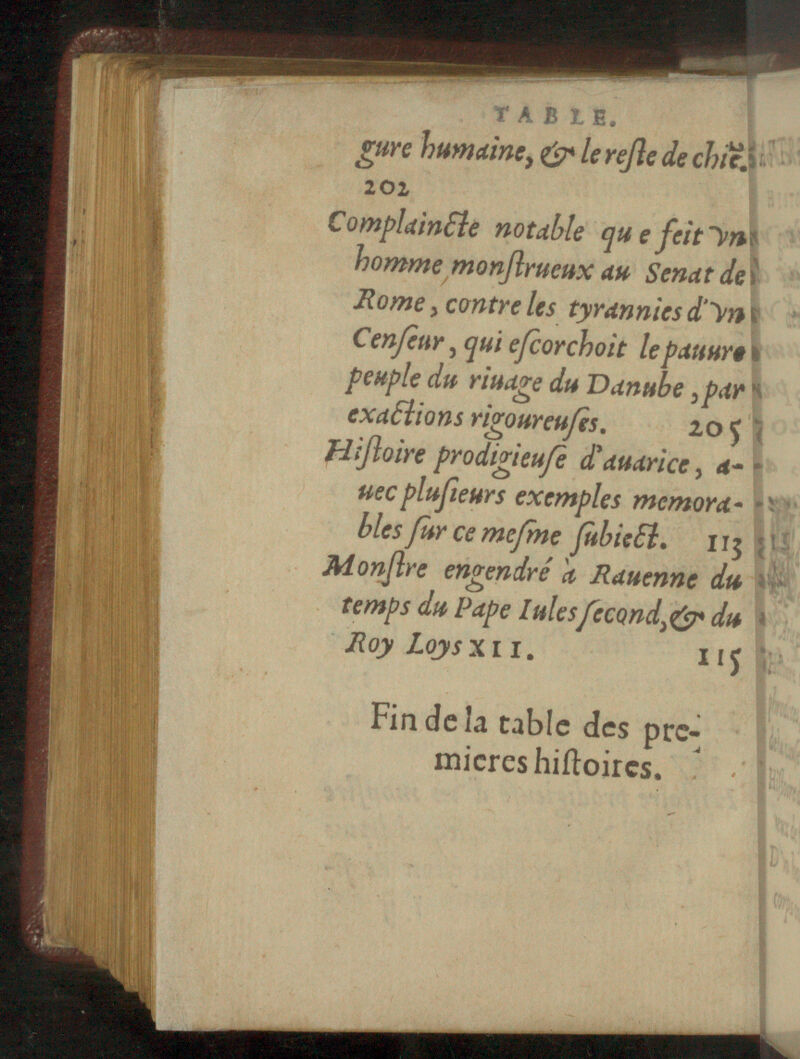 TABLE.
gure humaine, & le reſte de chiẽ.
202
Complaincte notable que feit vn
homme monſtrueux au Senat de
Rome, contre les tyrannies d'vn
Cenſeur, qui eſcorchoit le pauure
peuple du riuage du Danube, par
exactions rigoureuſes. 205
Hiſtoire prodigieuſe d'auarice, a-
uec pluſieurs exemples memora-
bles ſur ce meſme ſubiect. 113
Monſtre engendré à Rauenne du
temps du Pape Iules ſecond, & du
Roy Loys XII. 115
Fin de la table des pre-
mieres hiſtoires.